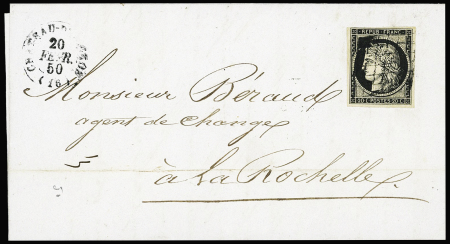 20
FEVR.
50
(16)
REPUB. FRANC.
20 C POSTES 20 C
Monsieur Béraud
agent de change
à La Rochelle